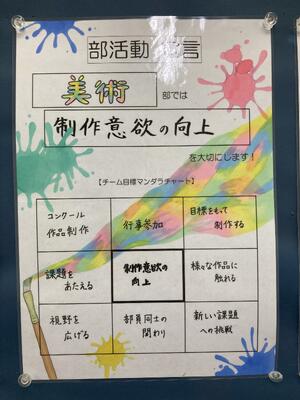 部活動宣言
美術
部では
制作意欲の向上
を大切にします！
【チーム目標マンダラチャート】
コンクール
作品制作
行事参加
目標をもって
制作する
課題を
あたえる
制作意欲の
向上
様々な作品に
触れる
視野を
広げる
部員同士の
関わり
新しい課題
への挑戦